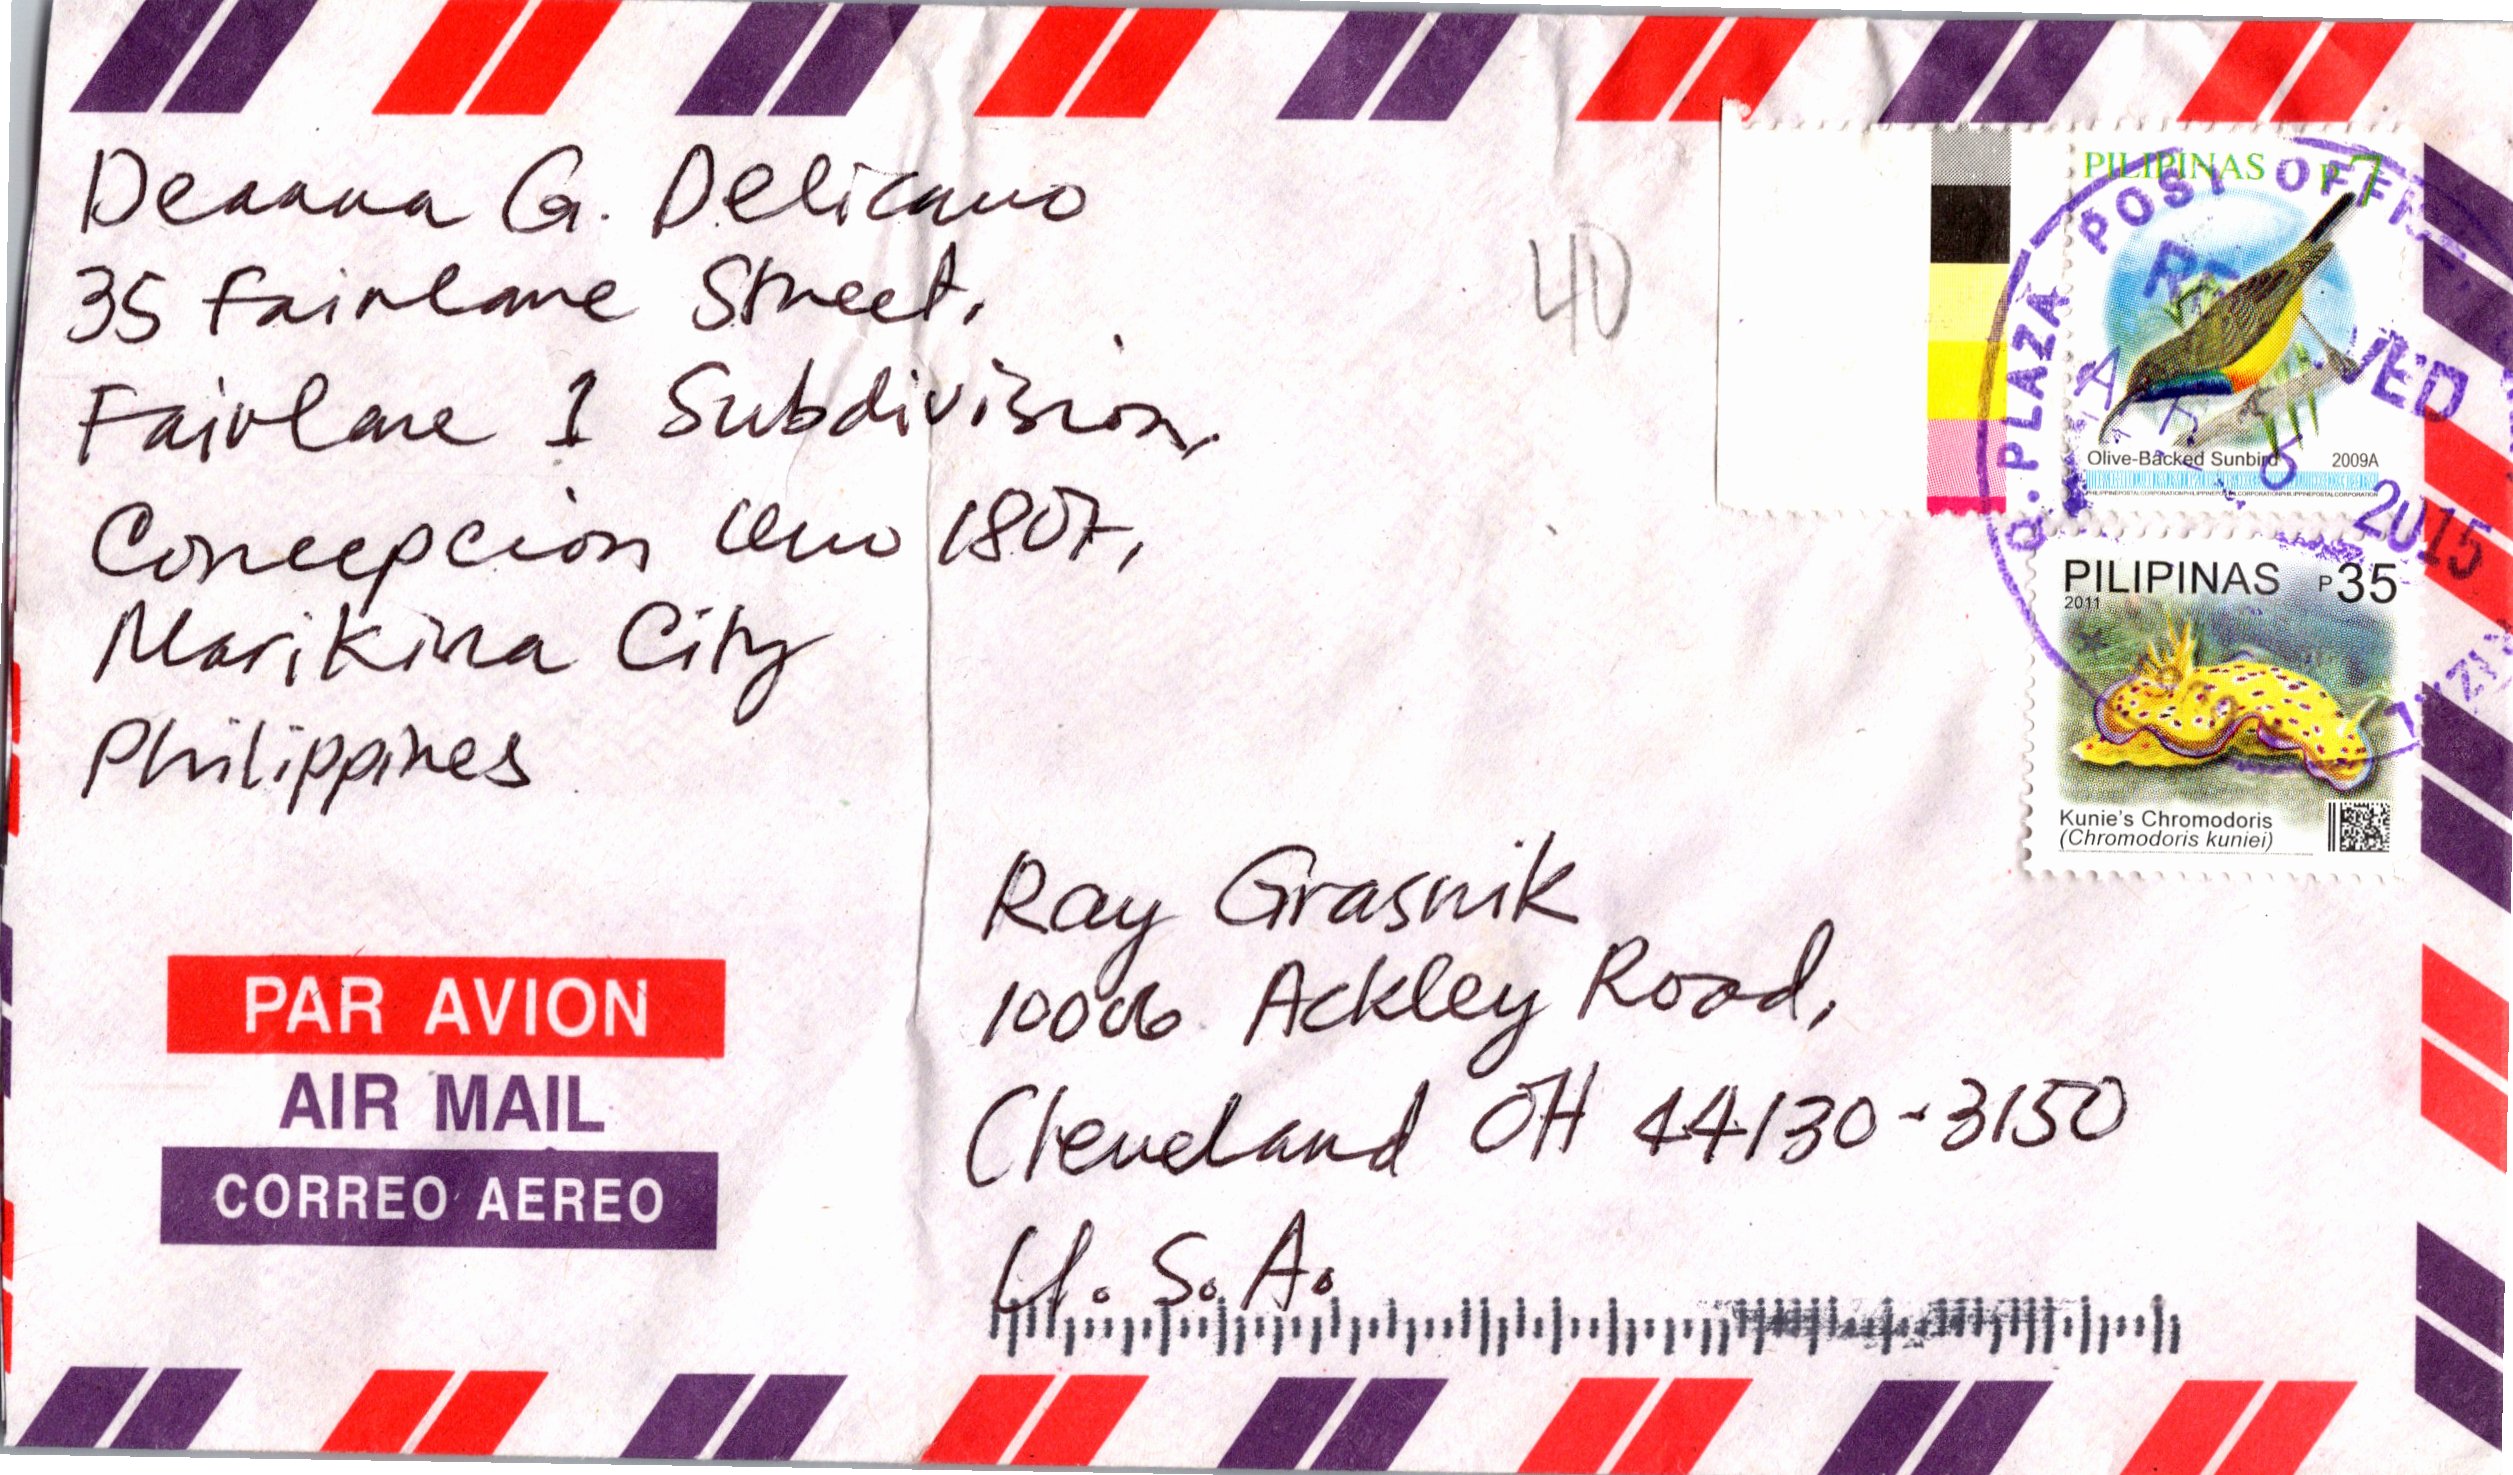 Deanna G. Delicano
35 Fairlane Street,
Fairlane 1 Subdivision,
Concepcion Uno 1807,
Marikina City
Philippines
40
PILIPINAS P7
Olive-Backed Sunbird 2009A
Q. PLAZA POST OFFICE
2015
PILIPINAS P35
2011
Kunie's Chromodoris
(Chromodoris kuniei)
PAR AVION
AIR MAIL
CORREO AEREO
Ray Grasnik
Ackley Road,
Cleveland OH 44130-3150
U.S.A.